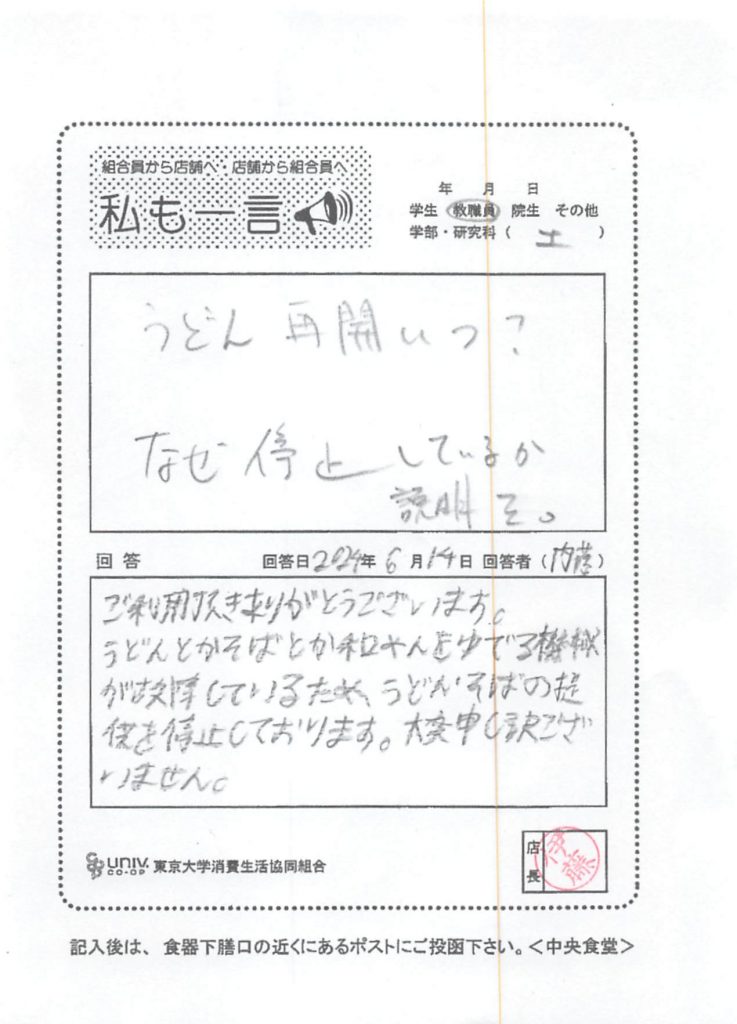 組合員から店舗へ・店舗から組合員へ
私も一言
年 月 日
学生 教職員 院生 その他
学部・研究科( 土 )
うどん 再開いつ?
なぜ 停止しているか
説明を。
回答 回答日2024年 6月14日 回答者(内藤)
ご利用頂きありがとうございます。
うどんとかそばとか和めんをゆでる機械
が故障しているため、うどん・そばの提
供を停止しております。大変申し訳ござ
いません。
UNIV. CO-OP 東京大学消費生活協同組合
店長 伊藤
記入後は、食器下膳口の近くにあるポストにご投函下さい。<中央食堂>